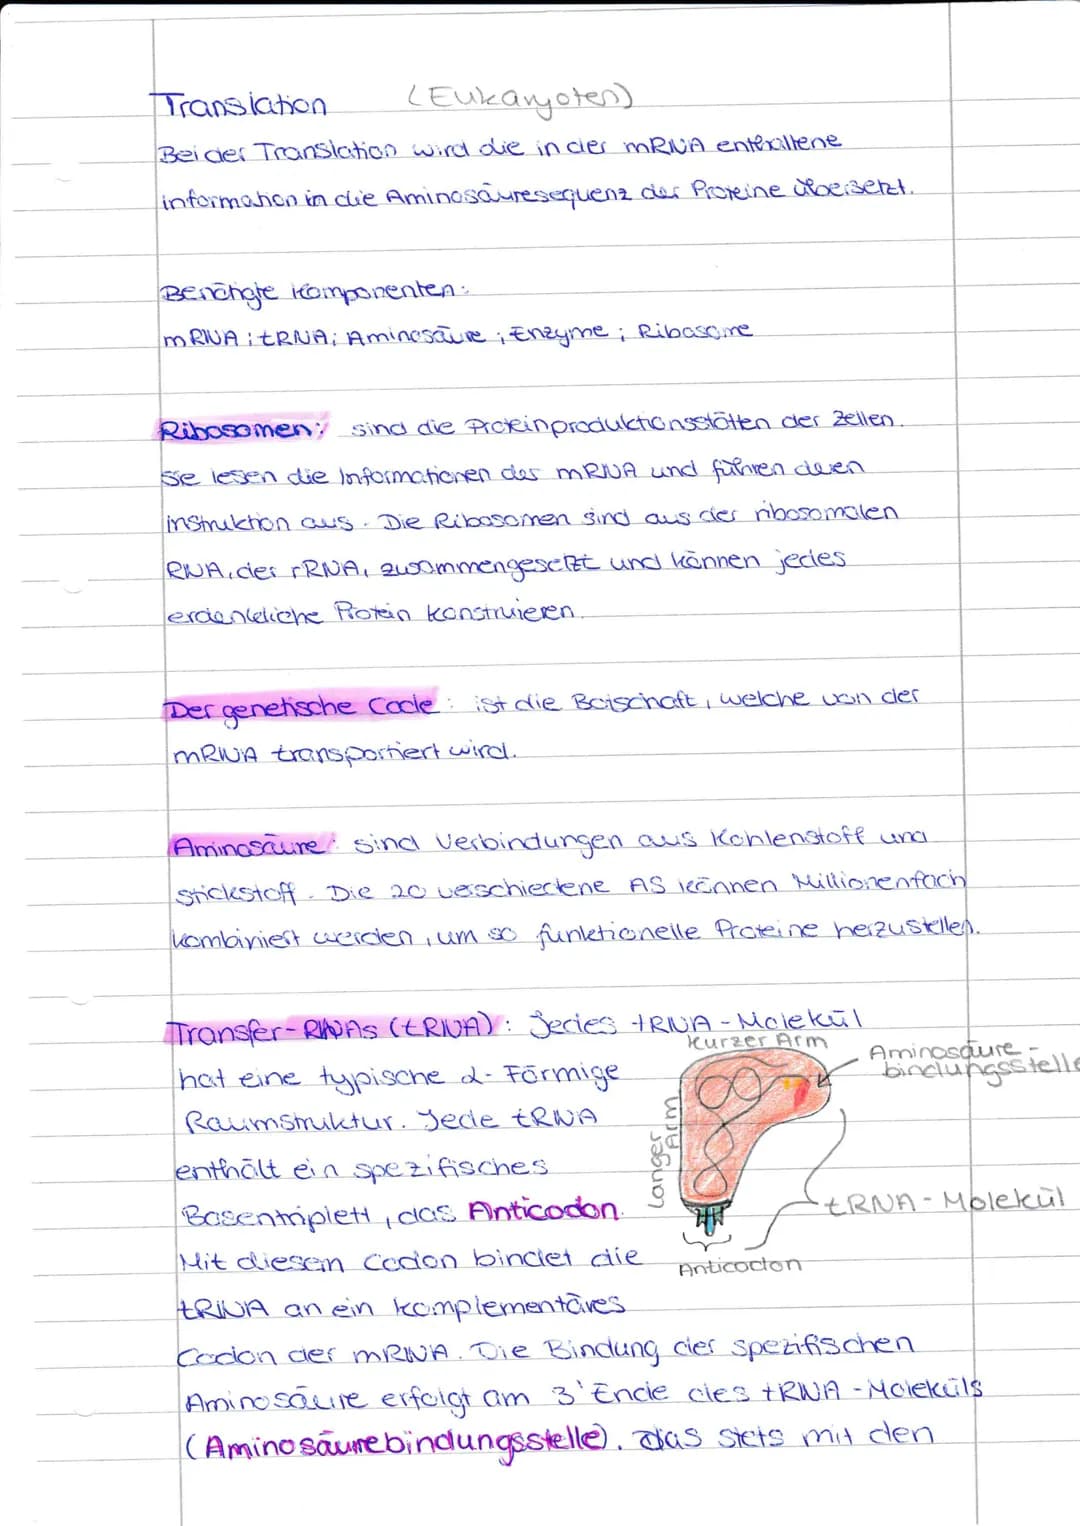 Translation (Eukaryoten)
Bei der Translation wird die in der mRNA enthaltene
information in die Aminosäuresequenz der Proteine übersetzt.
Benötigte Komponenten:
mRNA; tRNA; Aminosäure; Enzyme; Ribosome
Ribosomen: sind die Proteinproduktionsstätten der Zellen.
Sie lesen die Informationen der mRNA und führen deren
instruktion aus. Die Ribosomen sind aus der ribosomalen
RNA, der rRNA, zusammengesetzt und können jedes
erdenkliche Protein konstruieren.
Der genetische Code: ist die Botschaft, welche von der
mRNA transportiert wird.
Aminosäure: sind Verbindungen aus Kohlenstoff und
stickstoff. Die 20 verschiedene AS können Millionenfach
kombiniert werden, um so funktionelle Proteine herzustellen.
Transfer-RNAs (tRNA): Jedes tRNA-Molekül
hat eine typische L-Förmige
Raumstruktur. Jede tRNA
enthält ein spezifisches
Basentriplett, das Anticodon.
Mit diesem Codon bindet die
tRNA an ein komplementäres
Codon der mRNA. Die Bindung der spezifischen
Aminosäure erfolgt am 3'Ende des tRNA-Moleküls
(Aminosäurebindungsstelle), das stets mit den
Kurzer Arm
Aminosäure-
bindungsstelle
Langer
Arm
tRNA-Molekül
Anticodon